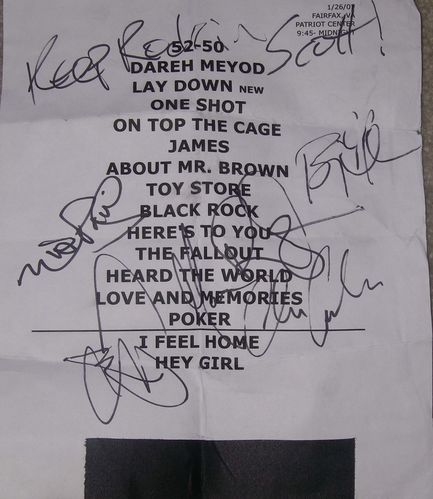 1/26/07
FAIRFAX, VA
PATRIOT CENTER
9:45- MIDNIGHT
KEEP Scott!
52-50
DAREH MEYOD
LAY DOWN NEW
ONE SHOT
ON TOP THE CAGE
JAMES
ABOUT MR. BROWN
TOY STORE
BLACK ROCK
HERE'S TO YOU
THE FALLOUT
HEARD THE WORLD
LOVE AND MEMORIES
POKER
I FEEL HOME
HEY GIRL